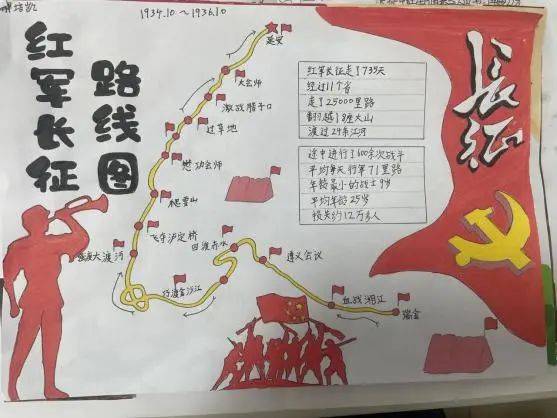 1934.10～1936.10
红军长征
路线图
长征
红军长征走了735天
经过11个省
走了25000里路
翻越18座大山
渡过24条江河
途中进行了600余次战斗
平均每天行军71里路
年龄最小的战士9岁
平均年龄25岁
损失约12万多人
延安
大会师
激战腊子口
过草地
懋功会师
爬雪山
飞夺泸定桥
强渡大渡河
巧渡金沙江
四渡赤水
遵义会议
血战湘江
瑞金